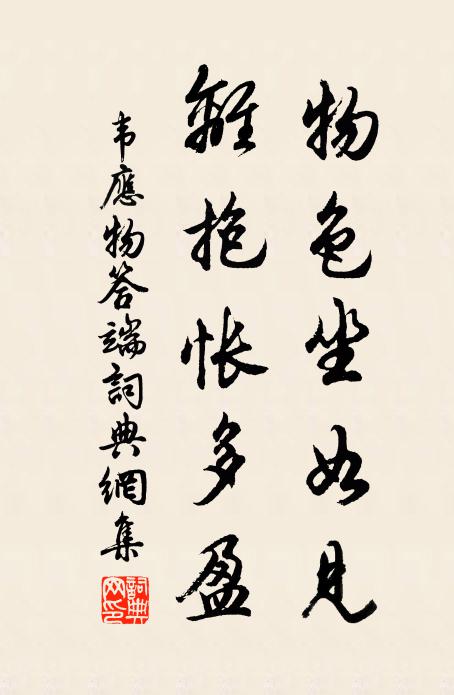 物色坐如見
離抱悵多盈
韦應物答端詞典網集
詞典网印